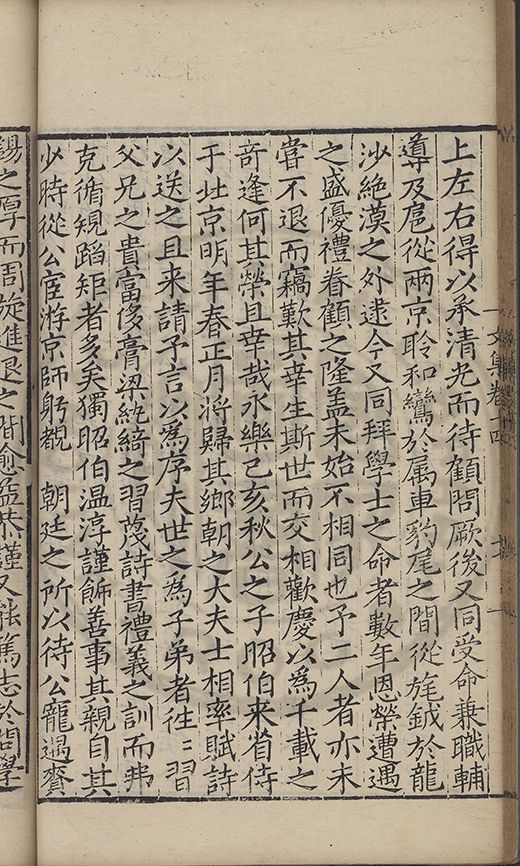 文集卷十四
上左右得以承清光而待顧問厥後又同受命兼職輔
導及扈從兩京聆和鸞於属車豹尾之間從旄鉞於龍
沙絶漠之外逮今又同拜學士之命者數年恩榮遭遇
之盛優禮眷顧之隆盖未始不相同也予二人者亦未
嘗不退而竊歎其幸生斯世而交相歡慶以為千載之
竒逢何其榮且幸哉永樂己亥秋公之子昭伯来省侍
于北京明年春正月將歸其鄉朝之大夫士相率賦詩
以送之且来請予言以為序夫世之為子弟者徃〻習
父兄之貴富侈膏梁紈綺之習蔑詩書禮義之訓而弗
克循規蹈矩者多矣獨昭伯温淳謹飭善事其親自其
少時從公宦游京師躬覩 朝廷之所以待公寵遇賚
錫之厚而周旋進退之間愈益恭謹又能篤志於問學